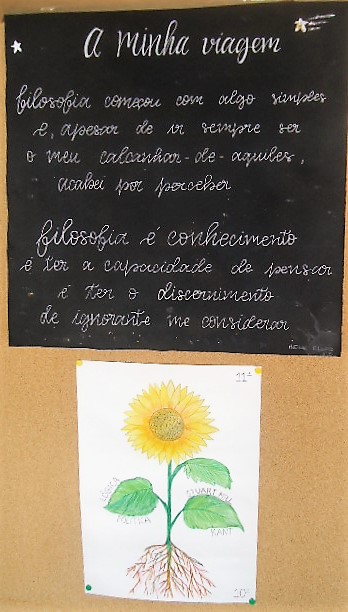 A minha viagem
filosofia começou com algo simples
e, apesar de ir sempre ser
o meu calcanhar-de-aquiles,
acabei por perceber
filosofia é conhecimento
é ter a capacidade de pensar
é ter o discernimento
de ignorante me considerar
11º
LÓGICA
POLÍTICA
STUART MILL
KANT
10º